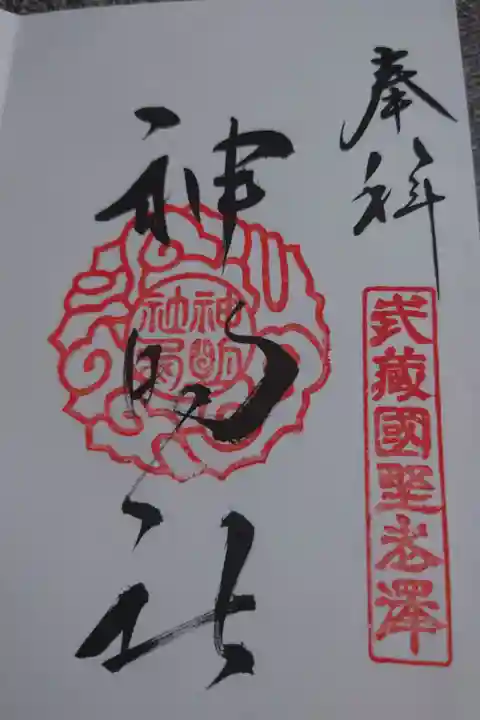 奉拝
武蔵國野老澤
神明社
神明社